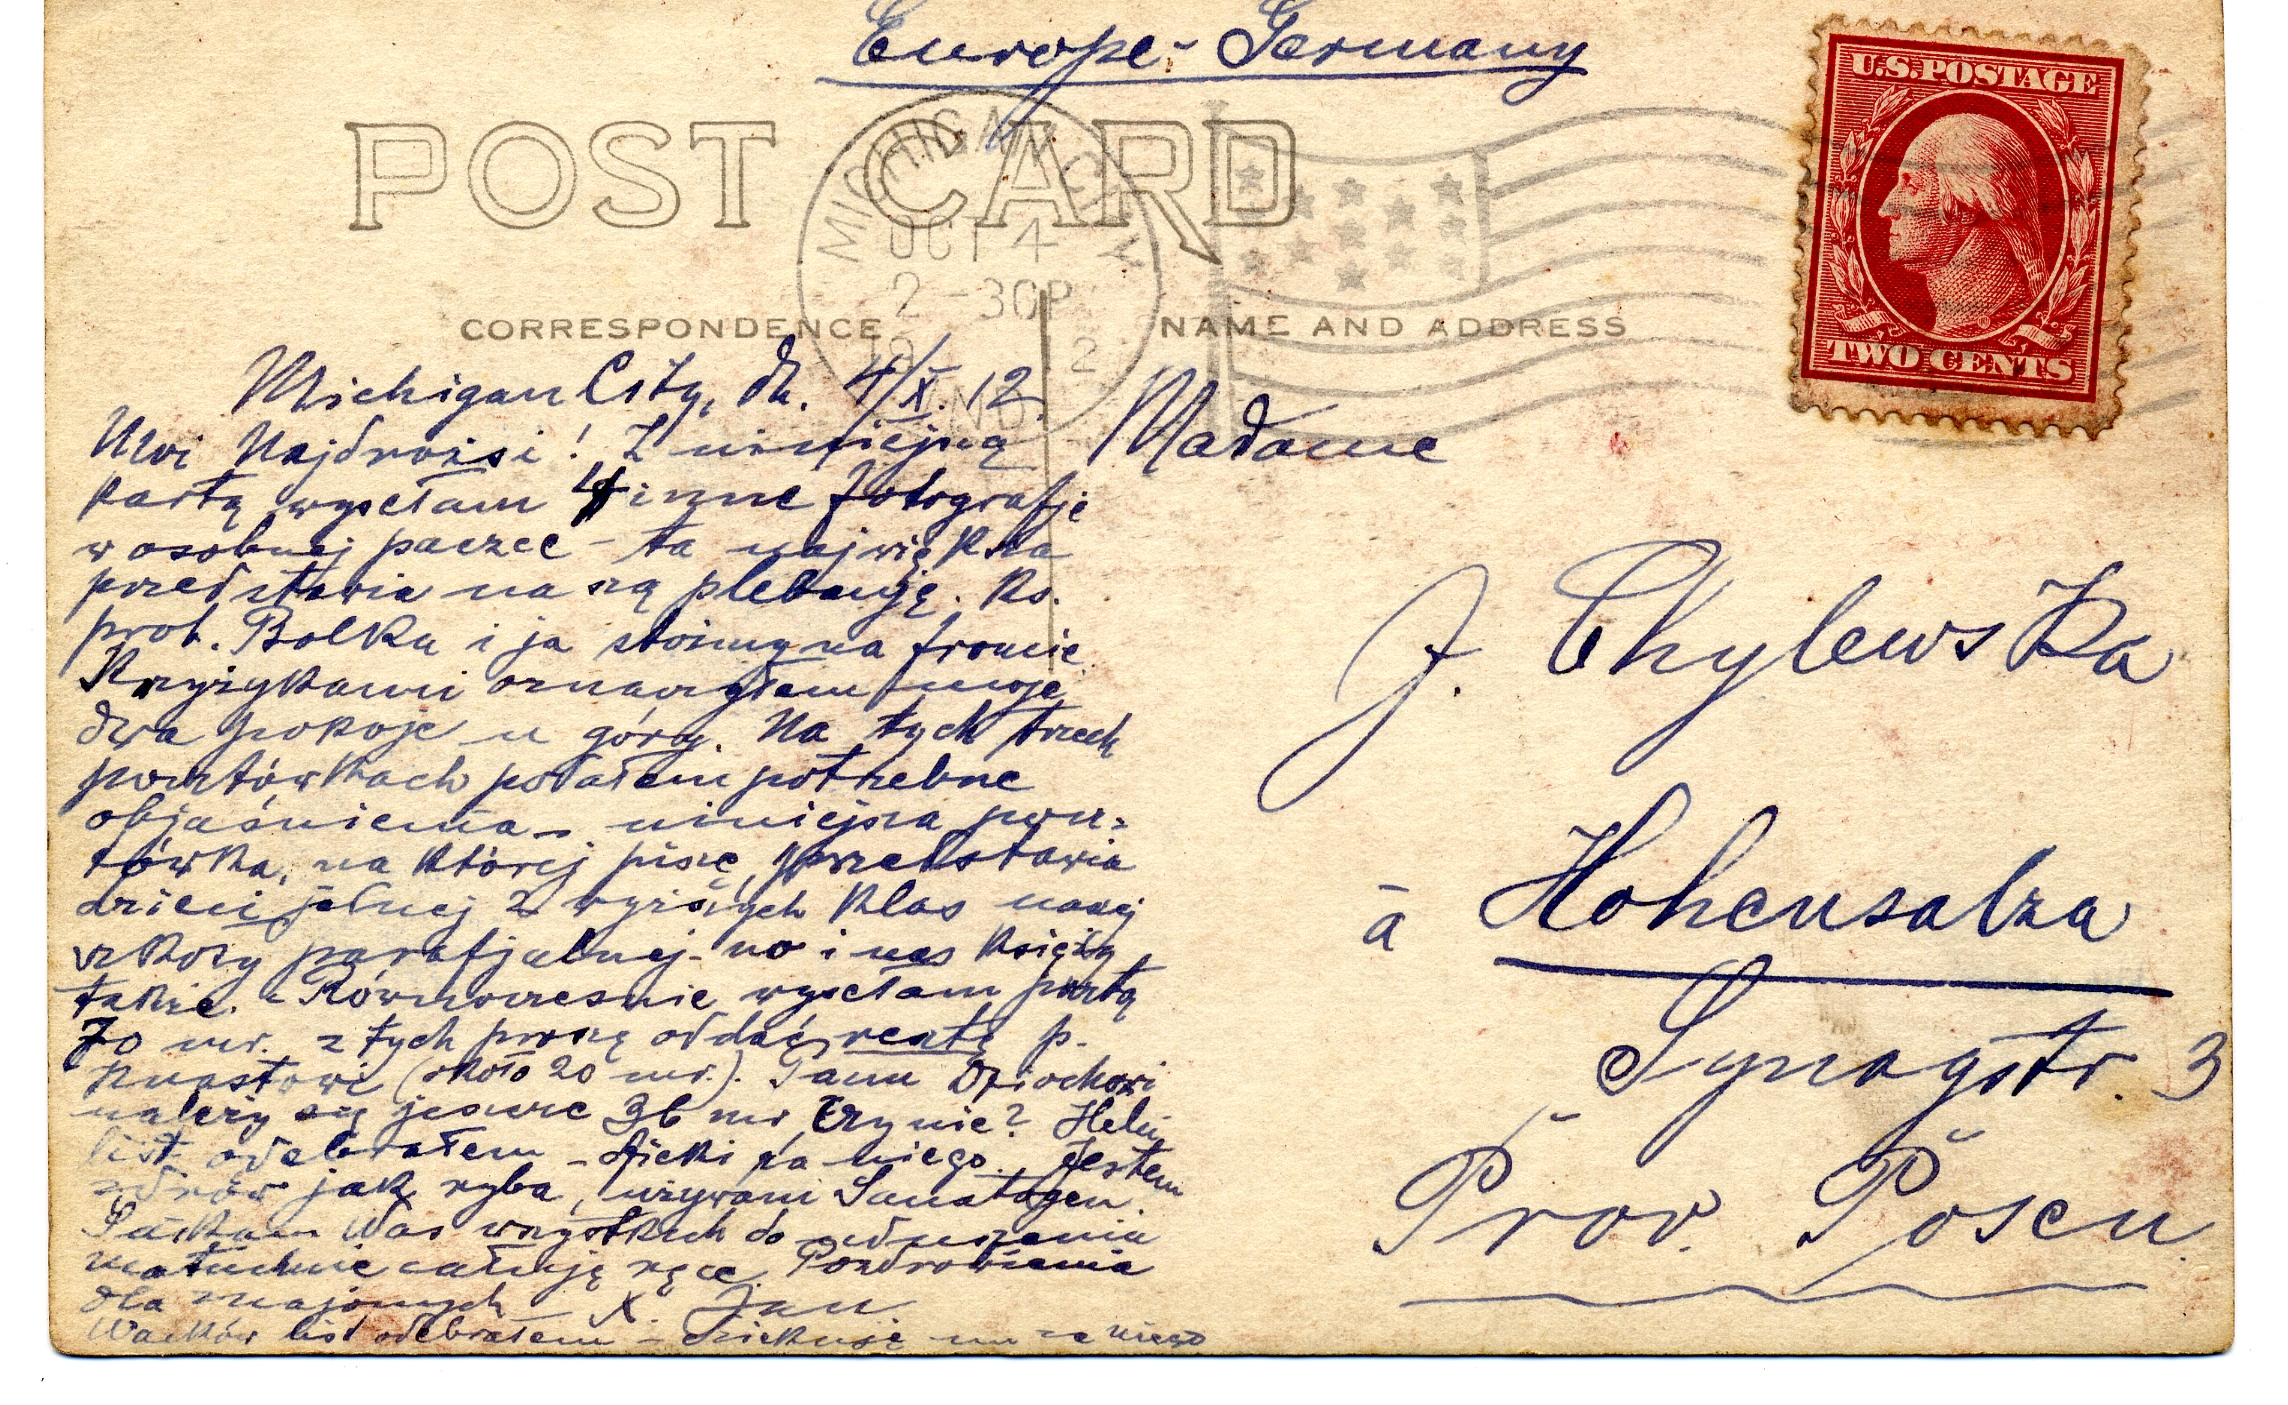 Europe - Germany
U.S. POSTAGE
TWO CENTS
POST CARD
MICHIGAN CITY
OCT 4
2-30P
1912
IND.
CORRESPONDENCE
NAME AND ADDRESS
Michigan City, dn. 4/X. 12.
Moi Najdrożsi! Z niniejszą
kartą wysełam 4 inne fotografje
w osobnej paczce – ta największa
przedstawia naszą plebanję. Ks.
prob. Bolka i ja stoimy na froncie
Krzyżykami oznaczyłem moje
dwa pokoje u góry. Na tych trzech
pocztówkach podałem potrzebne
objaśnienia – niniejsza pocz=
tówka, na której piszę, przedstawia
dzieci jednej z wyższych klas naszej
szkoły parafjalnej – no i nas księży
także. – Równocześnie wysełam pocztą
70 mr. z tych proszę oddać resztę p.
(około 20 mr.). Panu
należy się jeszcze 36 mr czy nie? Heli
list odebrałem – dzięki za niego. Jestem
zdrów jak ryba, używam Sanatogen.
Ściskam Was wszystkich do uduszenia
matuchnie całuję ręce. Pozdrowienia
dla znajomych – X. Jan
Wacków list odebrałem – dziękuję mu za niego
Madame
J. Chylewska
à Hohensalza
Synagstr. 3
Prov. Posen